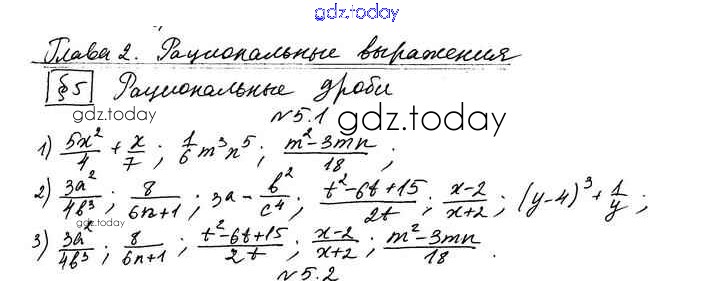 gdz.today
Глава 2. Рациональные выражения
§5 Рациональные дроби
gdz.today
№5.1
gdz.today
1) 5x²/4 + x/7 ; 1/6 m³n⁵ ; (m²-3mn)/18 ;
2) 3a²/4b³ ; 8/(6n+1) ; 3a - b²/c⁴ ; (t²-6t+15)/2t ; (x-2)/(x+2) ; (y-4)³ + 1/y ;
3) 3a²/4b³ ; 8/(6n+1) ; (t²-6t+15)/2t ; (x-2)/(x+2) ; (m²-3mn)/18 .
№5.2